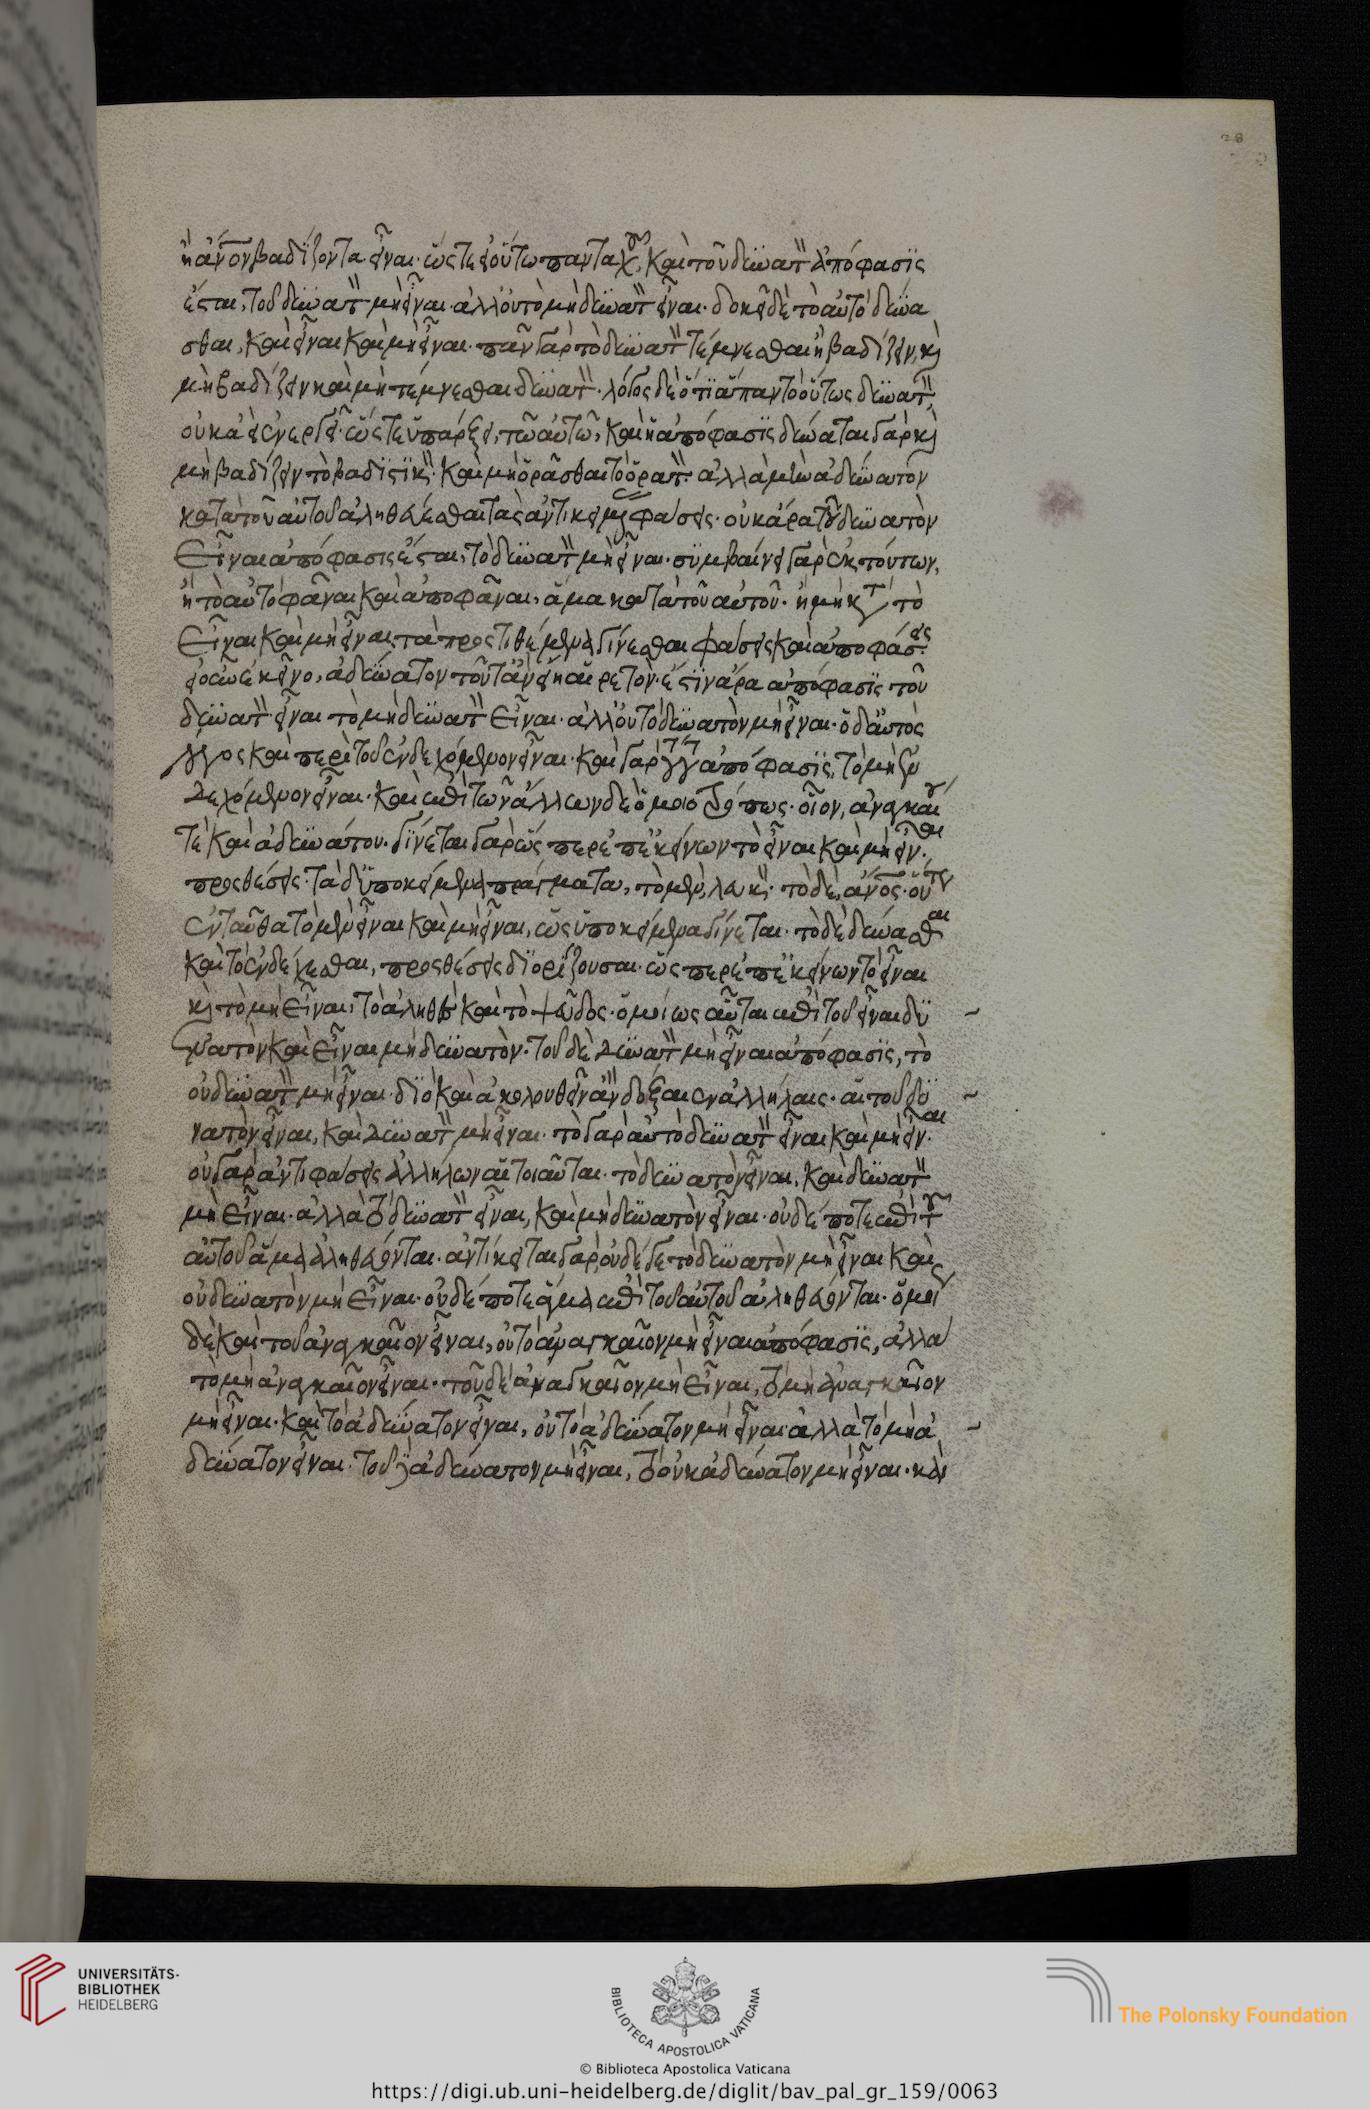 28
ἢ ἄνον βαδίζοντα εἶναι· ὥστε εἰ οὕτω πανταχοῦ, καὶ τοῦ δυνατ ἀπόφασις
ἔσται, τοῦ δυνατ μὴ εἶναι· ἀλλ' οὐ τὸ μὴ δυνατ εἶναι· δοκεῖ δὲ τὸ αὐτὸ δύνα
σθαι, καὶ εἶναι καὶ μὴ εἶναι· πᾶν γὰρ τὸ δυνατ τέμνεσθαι ἢ βαδίζειν, κὶ
μὴ βαδίζειν καὶ μὴ τέμνεσθαι δυνατ· λόγος δὲ ὅτι ἅπαν τὸ οὕτως δυνατ
οὐκ ἀεὶ ἐνεργεῖ· ὥστε ὑπάρξει, τῶ αὐτῶ, καὶ ἡ ἀπόφασις δύναται γὰρ κὶ
μὴ βαδίζειν τὸ βαδιστικ· καὶ μὴ ὁρᾶσθαι τὸ ὁρατ· ἀλλὰ μὴν ἀδύνατον
κατὰ τοῦ αὐτοῦ ἀληθεύεσθαι τὰς ἀντικειμ φάσεις· οὐκ ἄρα τοῦ δυνατὸν
εἶναι ἀπόφασις ἔσται, τὸ δυνατ μὴ εἶναι· συμβαίνει γὰρ ἐκ τούτων,
ἢ τὸ αὐτὸ φᾶναι καὶ ἀποφᾶναι, ἅμα κατὰ τοῦ αὐτοῦ· ἢ μὴ κτ τὸ
εἶναι καὶ μὴ εἶναι τὰ προστιθέμενα γίνεσθαι φάσεις καὶ ἀποφάσεις·
εἰ οὖν ἐκεῖνο, ἀδύνατον τοῦτ' ἂν εἴη αἱρετόν· ἔστιν ἄρα ἀπόφασις τοῦ
δυνατ εἶναι τὸ μὴ δυνατ εἶναι· ἀλλ' οὐ τὸ δυνατὸν μὴ εἶναι· ὁ δ' αὐτὸς
λόγος καὶ περὶ τοῦ ἐνδεχόμενον εἶναι· καὶ γὰρ ττ ἀπόφασις, τὸ μὴ ἐν
δεχόμενον εἶναι· καὶ ἐπὶ τῶν ἄλλων δὲ ὁμοιοτρόπως· οἷον, ἀναγκαίου
τὲ καὶ ἀδυνάτου· γίνεται γὰρ ὥσπερ ἐπ' ἐκείνων τὸ εἶναι καὶ μὴ εἶναι
προσθέσεις· τὰ δ' ὑποκείμενα πράγματα, τὸ μὲν, λευκ· τὸ δὲ, ἄνος· οὕτως
ἐνταῦθα τὸ μὲν εἶναι καὶ μὴ εἶναι, ὡς ὑποκείμενα γίνεται· τὸ δὲ δύνασθαι
καὶ τὸ ἐνδέχεσθαι, προσθέσεις διορίζουσαι· ὥσπερ ἐπ' ἐκείνων τὸ εἶναι
κὶ τὸ μὴ εἶναι, τὸ ἀληθὲς καὶ τὸ ψεῦδος· ὁμοίως αὗται ἐπὶ τοῦ εἶναι δυ
νατὸν καὶ εἶναι μὴ δυνατὸν· τοῦ δὲ δυνατ μὴ εἶναι ἀπόφασις, τὸ
οὐ δυνατ μὴ εἶναι· διὸ καὶ ἀκολουθεῖν ἂν δόξαιεν ἀλλήλαις· αἱ τοῦ δυ
νατὸν εἶναι, καὶ δυνατ μὴ εἶναι· τὸ γὰρ αὐτὸ δυνατ εἶναι καὶ μὴ εἶναι·
οὐ γὰρ ἀντιφάσεις ἀλλήλων αἱ τοιαῦται· τὸ δυνατὸν εἶναι, καὶ δυνατ
μὴ εἶναι· ἀλλὰ τὸ δυνατ εἶναι, καὶ μὴ δυνατὸν εἶναι· οὐδέποτε ἐπὶ τοῦ
αὐτοῦ ἅμα ἀληθεύονται· ἀντίκεινται γάρ, οὐδέ γε τὸ δυνατὸν μὴ εἶναι καὶ
οὐ δυνατὸν μὴ εἶναι· οὐδέποτε ἅμα ἐπὶ τοῦ αὐτοῦ ἀληθεύονται· ὁμοίως
δὲ καὶ τοῦ ἀναγκαῖον εἶναι, οὐ τὸ ἀναγκαῖον μὴ εἶναι ἀπόφασις, ἀλλὰ
τὸ μὴ ἀναγκαῖον εἶναι· τοῦ δὲ ἀναγκαῖον μὴ εἶναι, τὸ μὴ ἀναγκαῖον
μὴ εἶναι· καὶ τὸ ἀδύνατον εἶναι, οὐ τὸ ἀδύνατον μὴ εἶναι ἀλλὰ τὸ μὴ ἀ
δύνατον εἶναι· τοῦ δὲ ἀδύνατον μὴ εἶναι, τὸ οὐκ ἀδύνατον μὴ εἶναι· καὶ
UNIVERSITÄTS-
BIBLIOTHEK
HEIDELBERG
BIBLIOTECA APOSTOLICA VATICANA
The Polonsky Foundation
© Biblioteca Apostolica Vaticana
https://digi.ub.uni-heidelberg.de/diglit/bav_pal_gr_159/0063